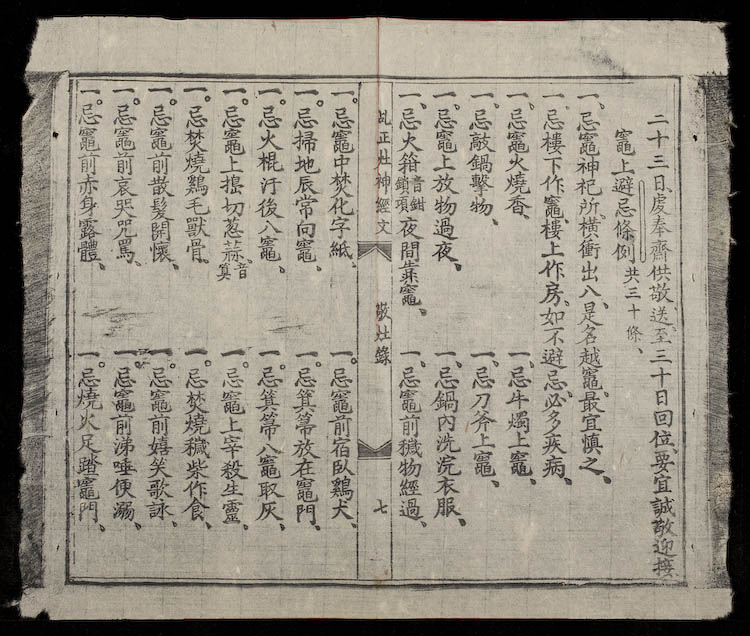 二十三日、虔奉齋供敬送、至三十日回位、要宜誠敬迎接
竈上避忌條例 共三十條、
一、忌竈神祀所、橫衝出入、是名越竈、最宜慎之、
一、忌樓下作竈、樓上作房、如不避忌、必多疾病、
一、忌竈火燒香、 一、忌牛燭上竈、
一、忌敲鍋擊物、 一、忌刀斧上竈、
一、忌竈上放物過夜、 一、忌鍋內洗浣衣服、
一、忌火箝音鉗鎖項夜間棄竈、 一、忌竈前穢物經過、
乩正灶神經文 敬灶錄 七
一、忌竈中焚化字紙、 一、忌竈前宿臥鷄犬、
一、忌掃地辰常向竈、 一、忌箕箒放在竈門、
一、忌火棍汙後入竈、 一、忌箕箒入竈取灰、
一、忌竈上擡切葱蒜音筭、 一、忌竈上宰殺生靈、
一、忌焚燒鷄毛獸骨、 一、忌焚燒穢柴作食、
一、忌竈前散髮開懷、 一、忌竈前嬉笑歌詠、
一、忌竈前哀哭咒罵、 一、忌竈前涕唾便溺、
一、忌竈前赤身露體、 一、忌燒火足踏竈門、